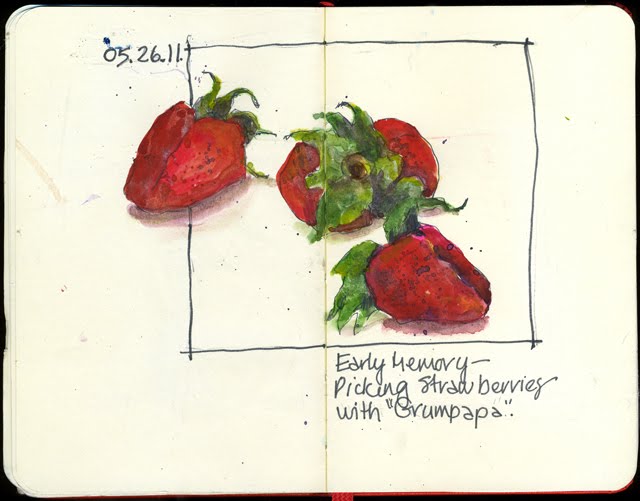 05.26.11.
Early Memory—
Picking Strawberries
with "Grumpapa".